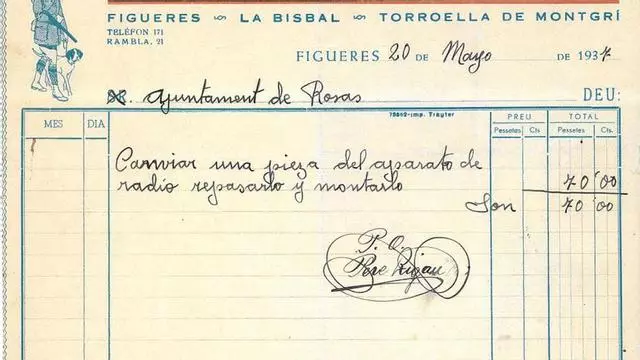 FIGUERES ∾ LA BISBAL ∾ TORROELLA DE MONTGRÍ
TELÈFON 171
RAMBLA, 21
FIGUERES 20 DE Mayo DE 1937
Ajuntament de Rosas DEU:
MES DIA PREU TOTAL
Pessetes Cts. Pessetes Cts.
75862-Imp. Trayter
Canviar una pieza del aparato de
radio repasarlo y montarlo 70'00
Son 70'00
P. O.
Pere Rigau